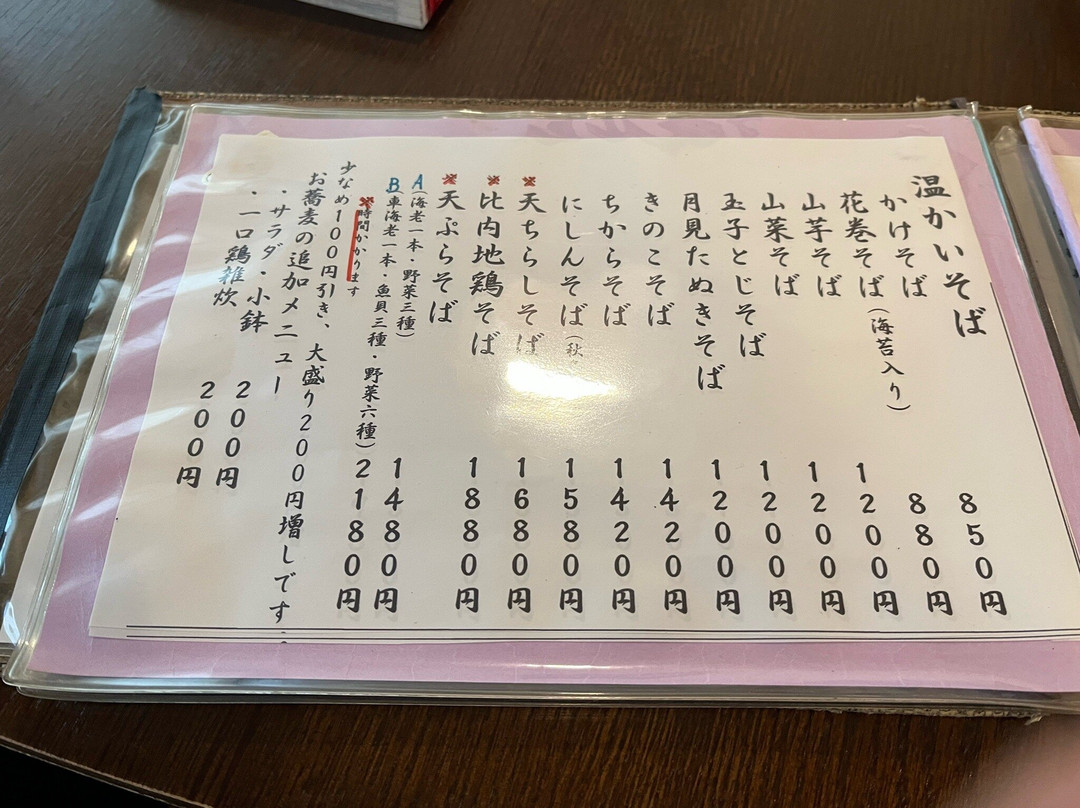 温かいそば
かけそば 850円
花巻そば（海苔入り） 880円
山芋そば 1200円
山菜そば 1200円
玉子とじそば 1200円
月見たぬきそば 1200円
きのこそば 1420円
ちからそば 1420円
にしんそば（秋 1580円
※天ちらしそば 1680円
※比内地鶏そば 1880円
※天ぷらそば
A（海老一本・野菜三種） 1480円
B（車海老一本・魚貝三種・野菜六種） 2180円
※時間かかります
少なめ100円引き、大盛り200円増しです
お蕎麦の追加メニュー
・サラダ・小鉢 200円
・一口鶏雑炊 200円